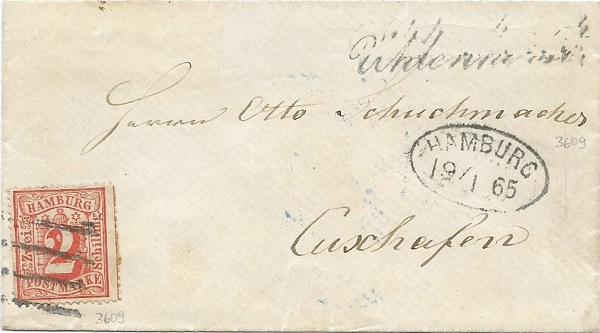 Herrn Otto Schuchmacher
3609
HAMBURG
19/1 65
Cuxhafen
HAMBURG
2
POSTMARKE
3609